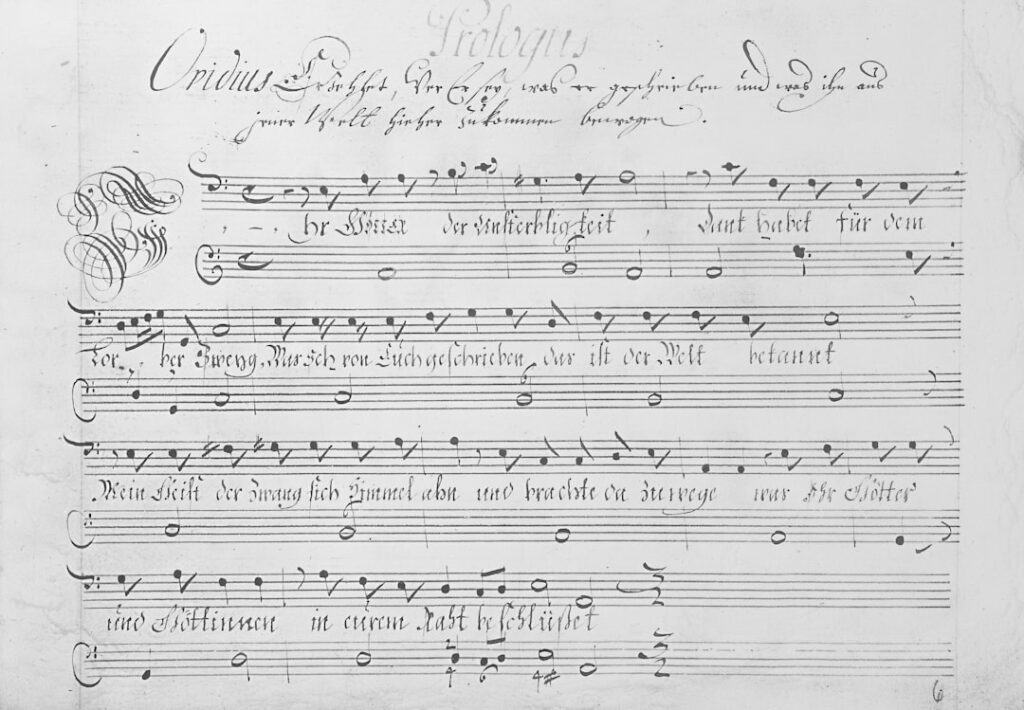 Prologus
Ovidius Erzehlet, Wer Er sey, was er geschrieben und was ihn aus
jener Welt hieher zukommen bewogen.
Ihr Götter der Unsterbligkeit, dank habet für dem
Lor, ber Zweyg, Was Ich von Euch geschrieben, das ist der Welt bekannt
Mein Geist der zwang sich Himmel ahn und brachte da zuwege was Ihr Götter
und Göttinnen in eurem Raht beschlüßet
6